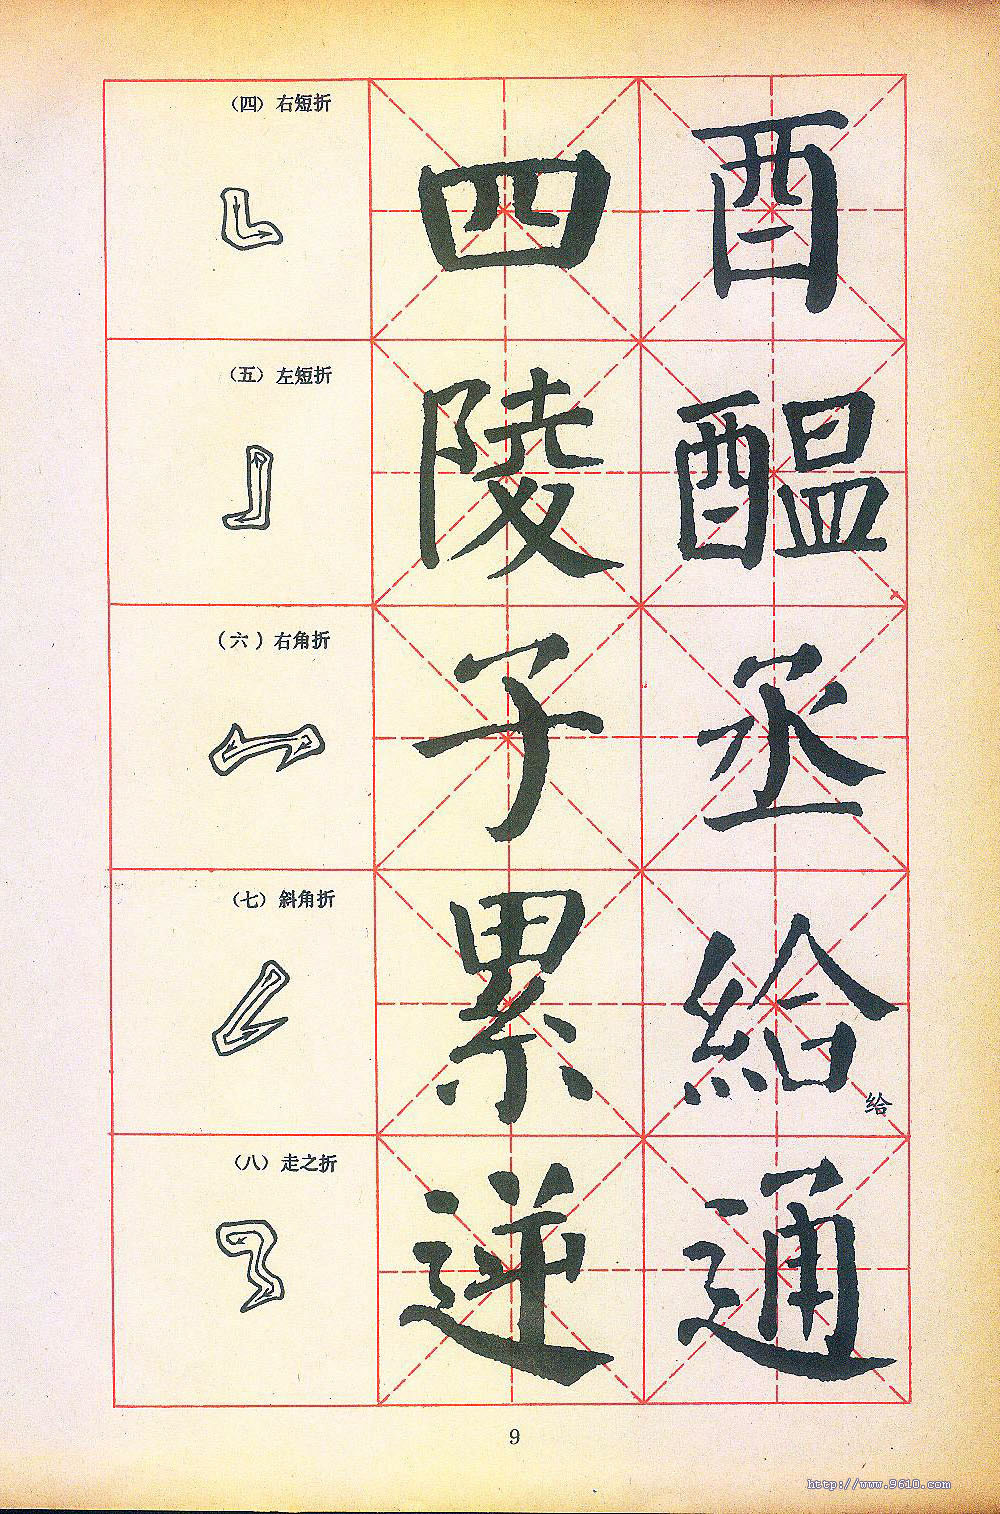 (四) 右短折
四 酉
(五) 左短折
陵 醖
(六) 右角折
子 丞
(七) 斜角折
累 給
给
(八) 走之折
逆 通
9
http://www.9610.com